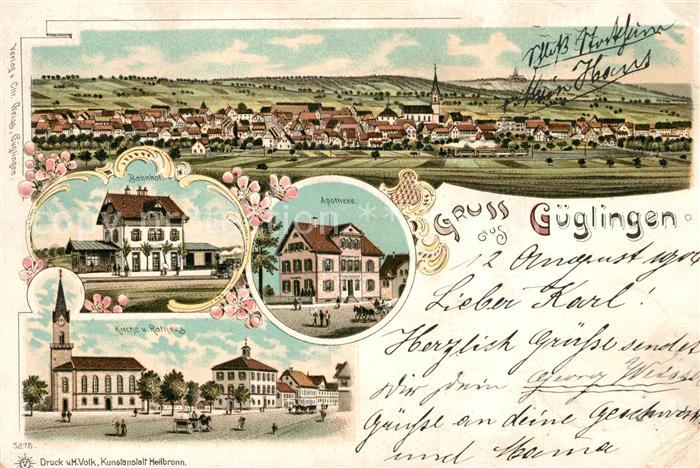 Schloß Stockheim
Mein Haus
Verlag v. Chr.
Güglingen.
Bahnhof.
Apotheke.
Gruss
aus
Güglingen.
12 August 1904
Lieber Karl!
Herzlich Grüße sendet
Dir dein Georg
Kirche u. Rathaus
Grüße an deine Geschwister
und Mama
5275.
Druck v.H. Volk, Kunstanstalt Heilbronn.